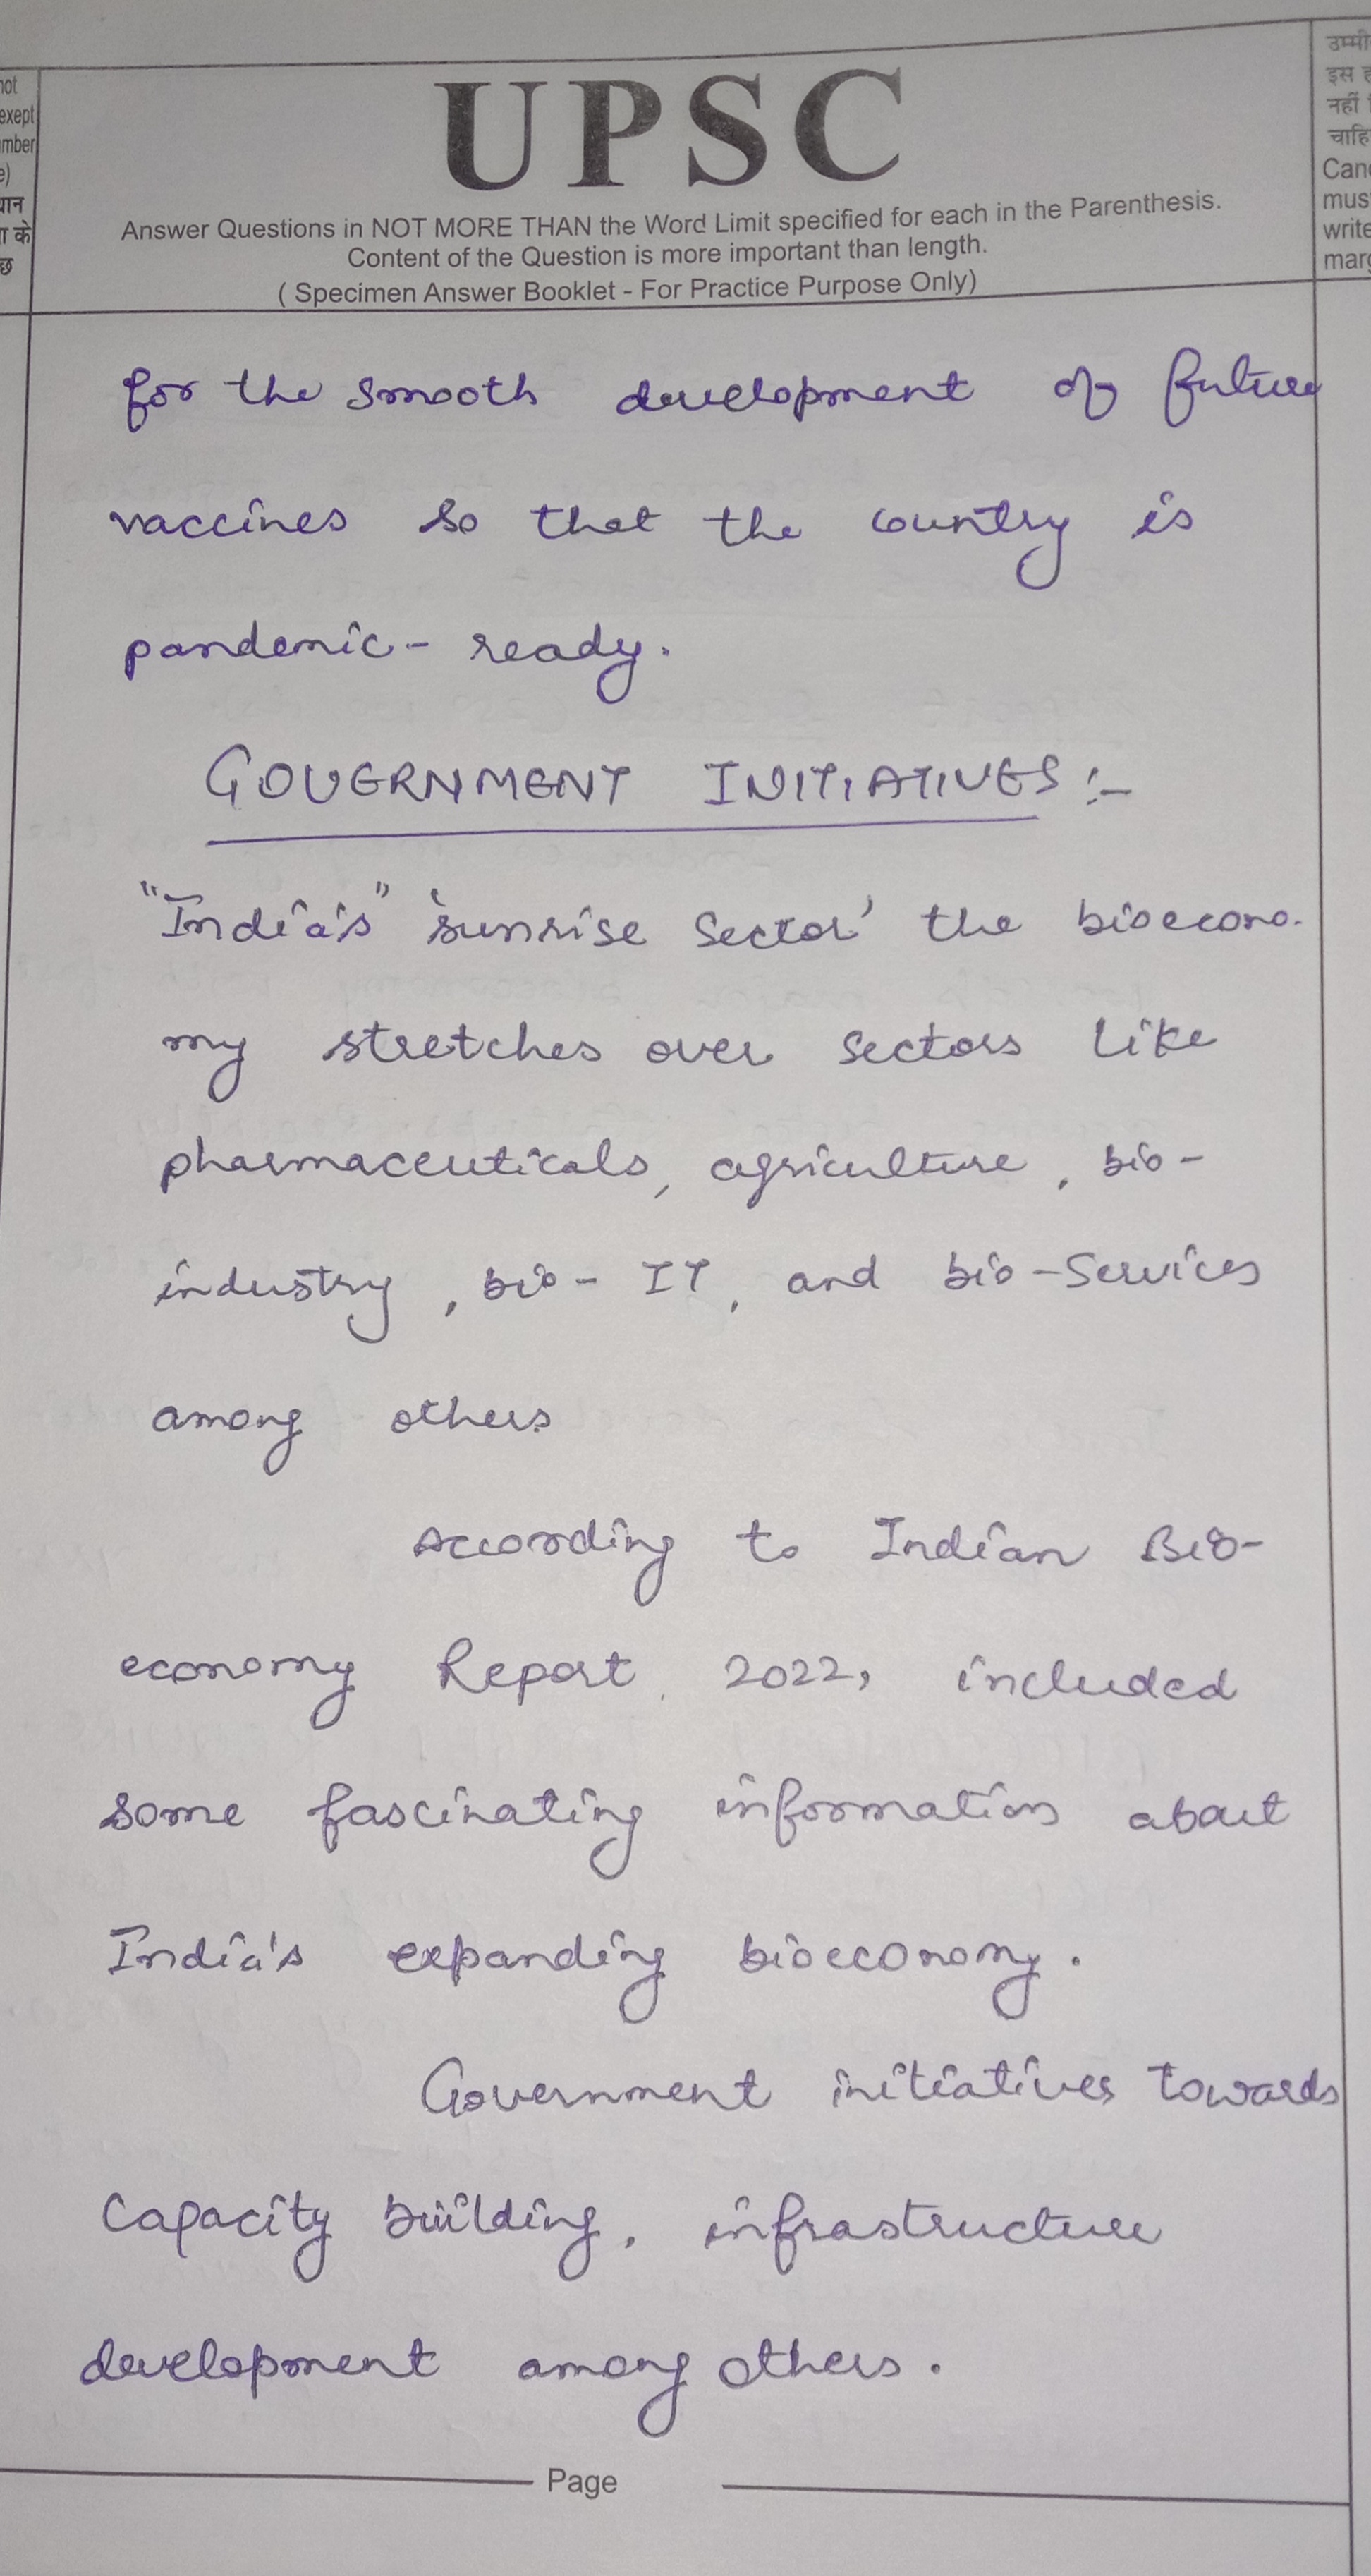 not
exept
mber
e)
यान
ा के
छ
उम्मी
इस ह
नहीं
चाहि
Can
mus
write
marg
UPSC
Answer Questions in NOT MORE THAN the Word Limit specified for each in the Parenthesis.
Content of the Question is more important than length.
( Specimen Answer Booklet - For Practice Purpose Only)
for the smooth development of future
vaccines so that the country is
pandemic- ready.
GOVERNMENT INITIATIVES :-
"India's" 'sunrise sector' the bioecono-
my stretches over sectors like
pharmaceuticals, agriculture, bio-
industry, bio- IT, and bio-Services
among others
According to Indian Bio-
economy Report, 2022, included
some fascinating information about
India's expanding bioeconomy.
Government initiatives towards
Capacity building, infrastructure
development among others.
Page